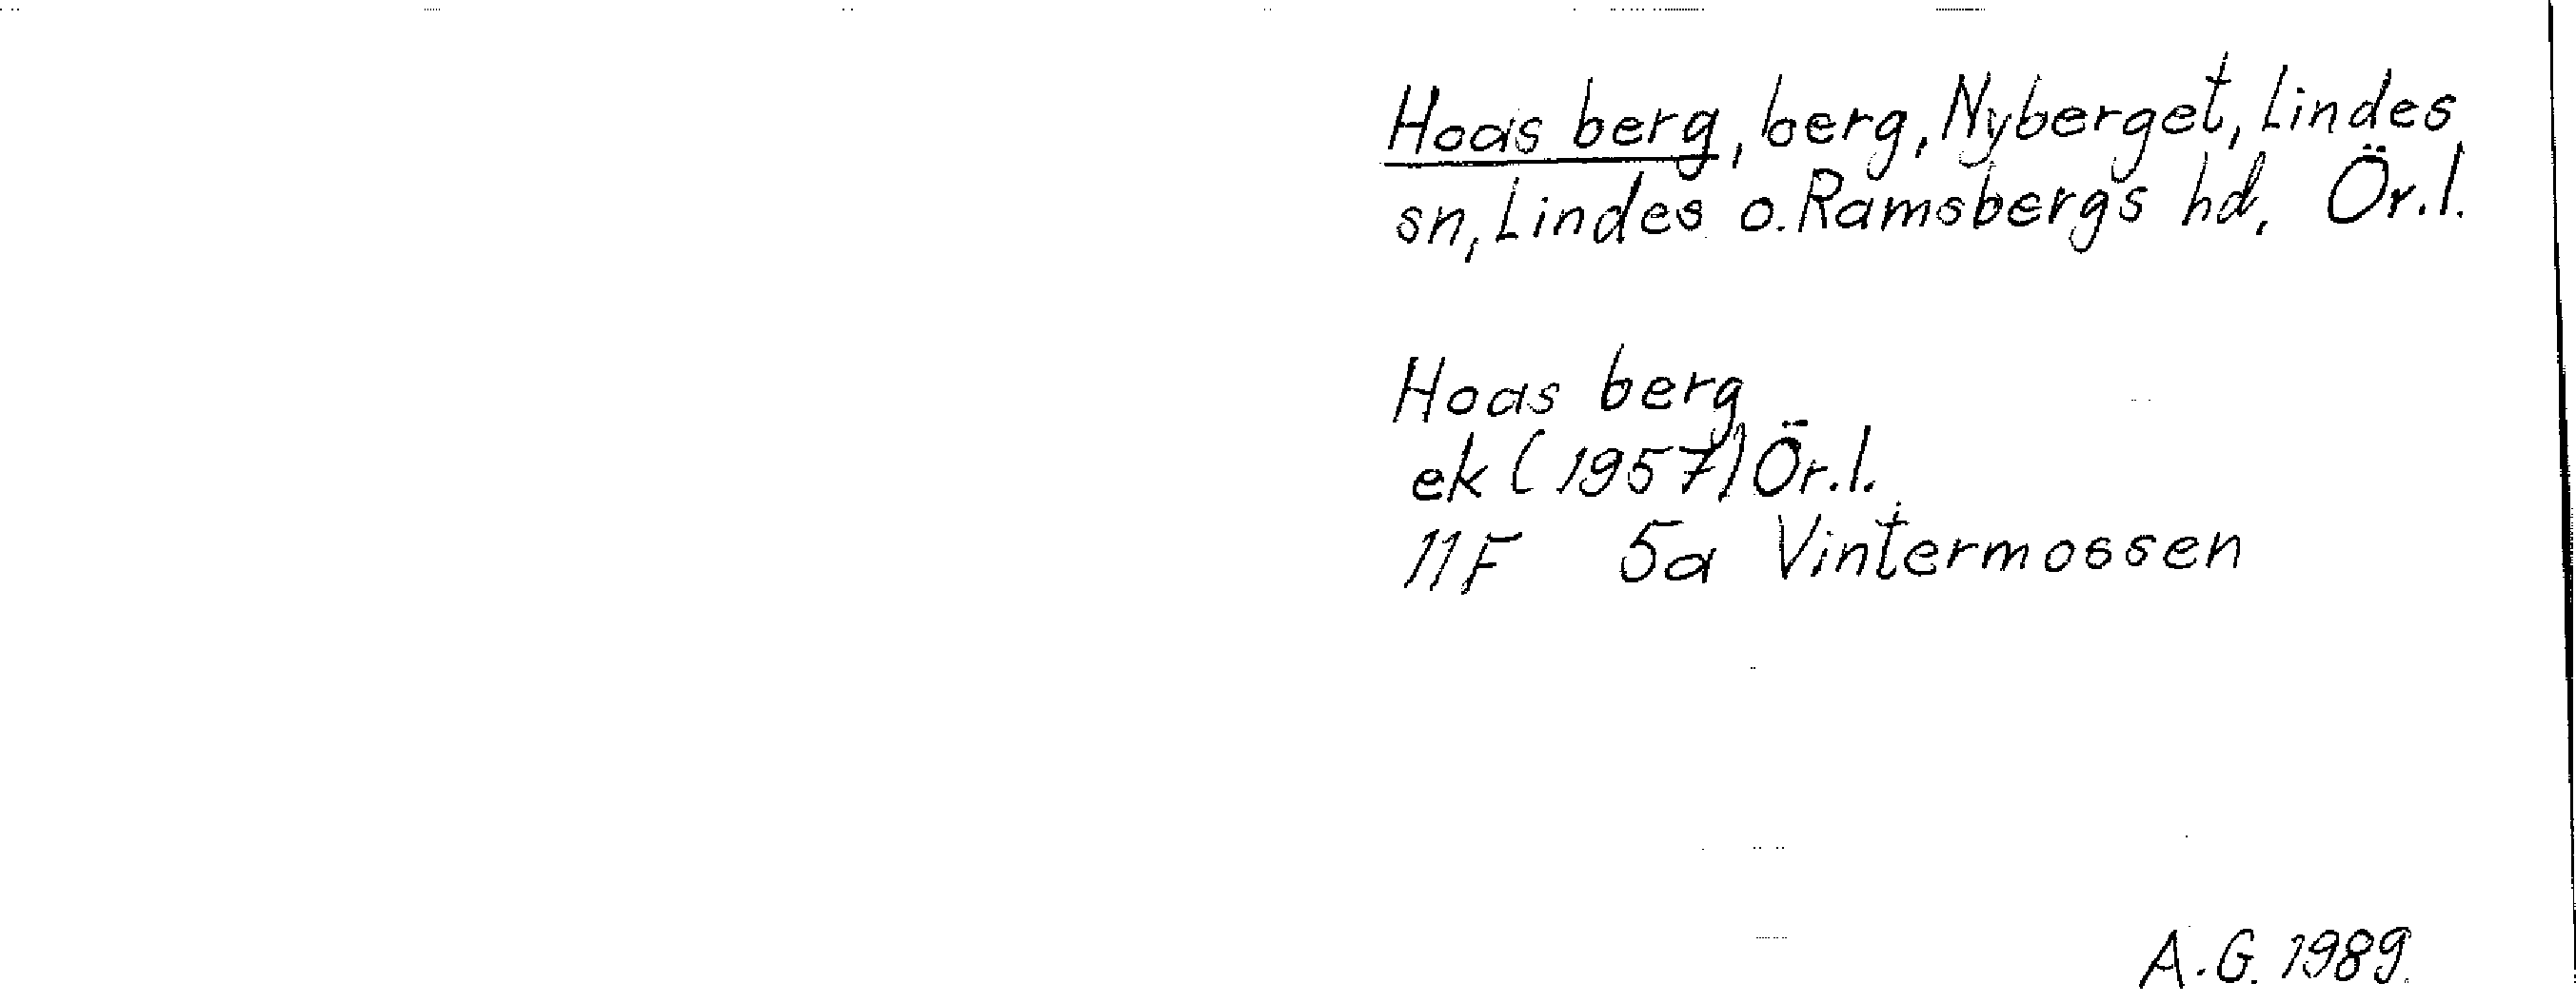 Hoas berg, berg, Nyberget, Lindes
sn, Lindes o. Ramsbergs hd, Ör.l.
Hoas berg
ek (1957) Ör.l.
11F 5a Vintermossen
A.G. 1989.